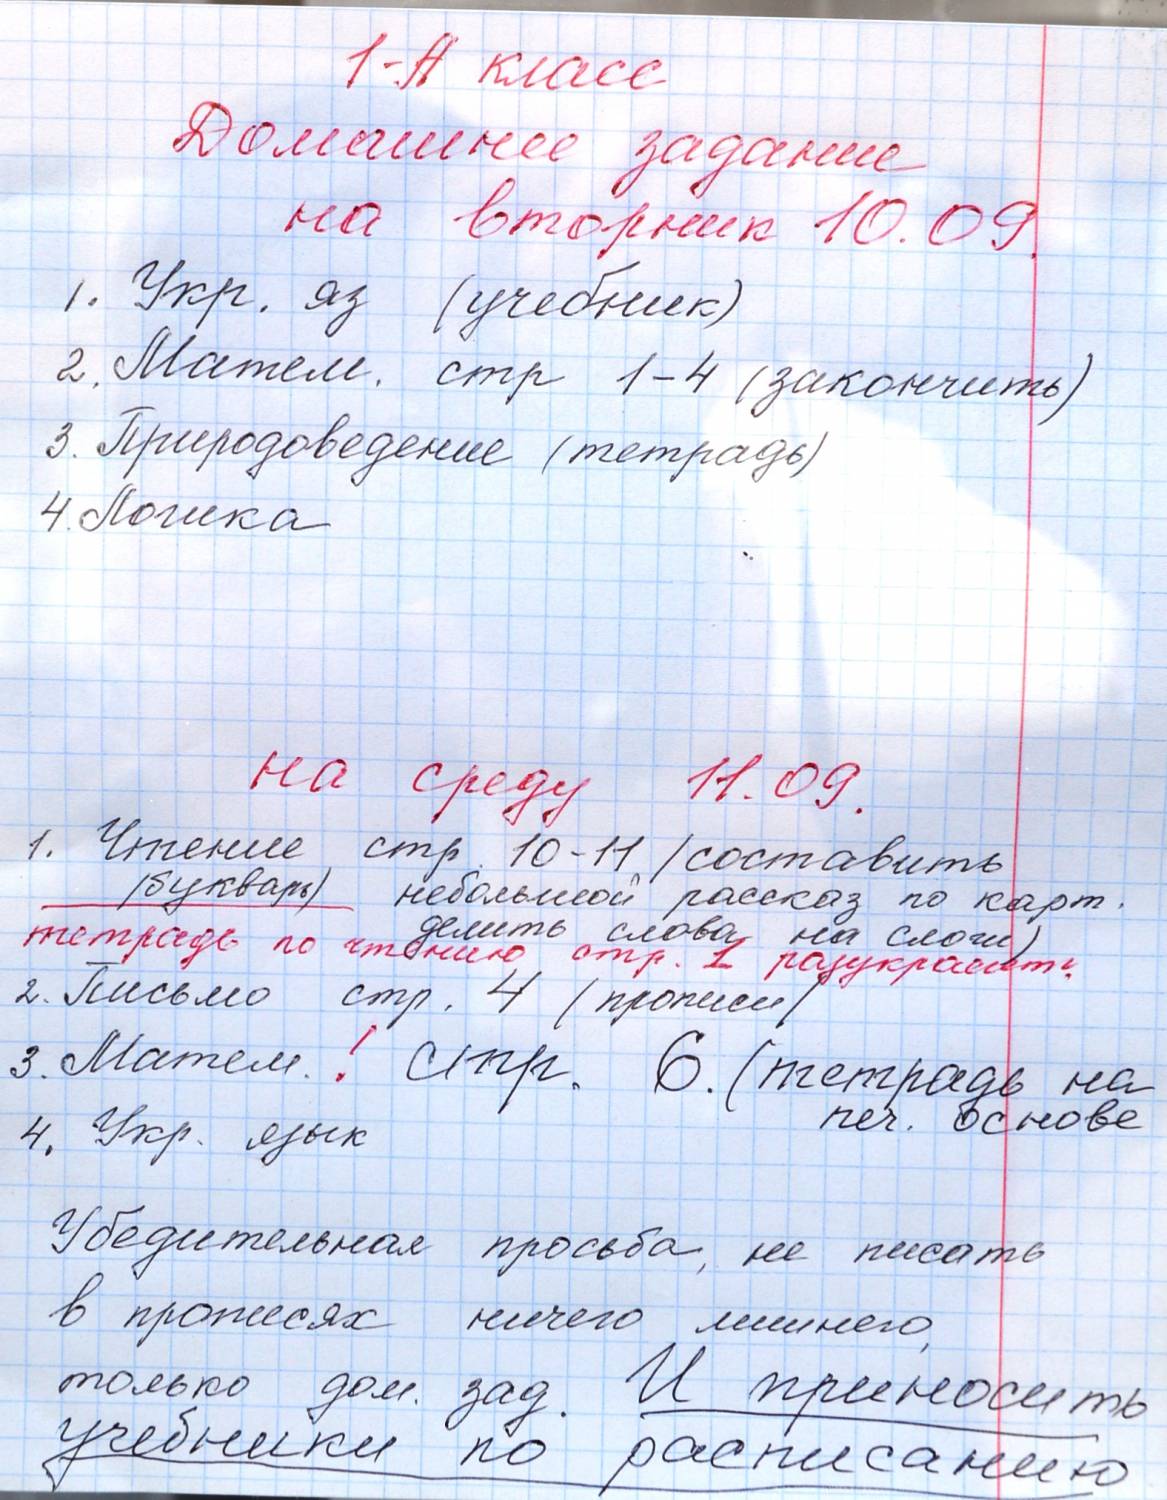 1-А класс
Домашнее задание
на вторник 10.09.
1. Укр. яз (учебник)
2. Матем. стр 1-4 (закончить)
3. Природоведение (тетрадь)
4. Логика
на среду 11.09.
1. Чтение стр. 10-11 (составить
(букварь) небольшой рассказ по карт.
делить слова на слоги)
тетрадь по чтению стр. 1 разукрасить
2. Письмо стр. 4 (прописи)
3. Матем. ! стр. 6. (тетрадь на
печ. основе
4. Укр. язык
Убедительная просьба, не писать
в прописях ничего лишнего,
только дом. зад. И приносить
учебники по расписанию